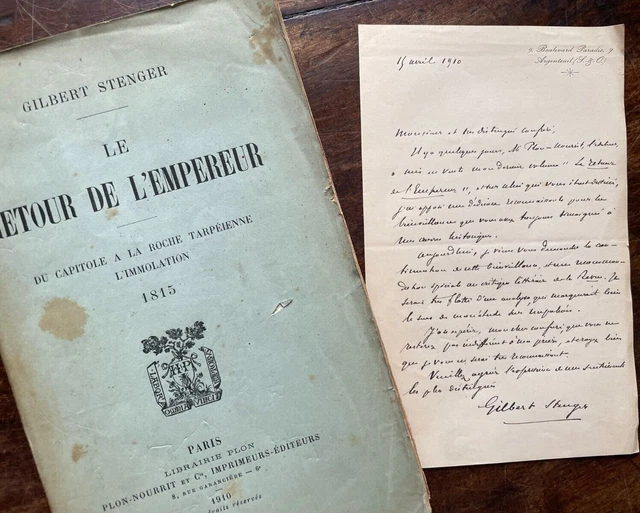 GILBERT STENGER
LE
RETOUR DE L'EMPEREUR
DU CAPITOLE A LA ROCHE TARPÉIENNE
L'IMMOLATION
1815
LABOR OMNIA VINCIT
PARIS
LIBRAIRIE PLON
PLON-NOURRIT ET Cie, IMPRIMEURS-ÉDITEURS
8, RUE GARANCIÈRE — 6e
1910
droits réservés
9, Boulevard Paradis, 9
Argenteuil (S. & O.)
15 avril 1910
Monsieur et très distingué confrère,
Il y a quelques jours, M. Plon-Nourrit,
a mis en vente mon dernier volume " Le retour
de l'Empereur ", et sur celui qui vous était destiné,
j'ai apposé une dédicace reconnaissante pour la
bienveillance que vous avez toujours témoignée à
mes œuvres historiques.
Aujourd'hui, je viens vous demander la con-
tinuation de cette bienveillance, et une recomman-
dation spéciale au critique littéraire de la Revue. Je
serais très flatté d'une analyse, qui marquerait bien
le sens de mon étude
J'ose espérer, mon cher confrère, que vous ne
resterez pas indifférent à ma prière, et croyez bien
que je vous en serai très reconnaissant.
Veuillez agréer l'expression de mes sentiments
les plus distingués
Gilbert Stenger